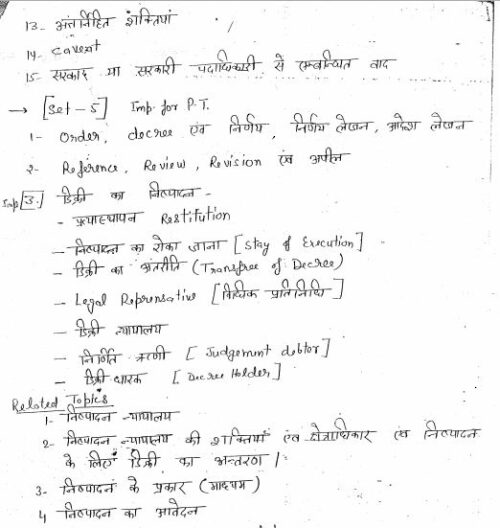 13- अंतर्निहित शक्तियां
14- Caveat
15- सरकार या सरकारी पदाधिकारी से सम्बन्धित वाद
→ [Set-5] Imp. for P.T.
1- Order, decree एवं निर्णय, निर्णय लेखन, आदेश लेखन
2- Reference, Review, Revision एवं अपील
Imp 3. डिक्री का निष्पादन -
- प्रत्यास्थापन Restitution
- निष्पादन का रोका जाना [Stay of Execution]
- डिक्री का अंतरीति (Transfree of Decree)
- Legal Reprensative [विधिक प्रतिनिधि]
- डिक्री न्यायालय
- निर्णित ऋणी [Judgement debtor]
- डिक्री धारक [Decree Holder]
Related Topics
1- निष्पादन न्यायालय
2- निष्पादन न्यायालय की शक्तियां एवं क्षेत्राधिकार एवं निष्पादन
के लिए डिक्री का अन्तरण।
3- निष्पादन के प्रकार (माध्यम)
4 निष्पादन का आवेदन